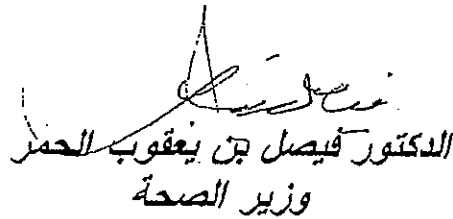 الدكتور فيصل بن يعقوب الحمر
وزير الصحة